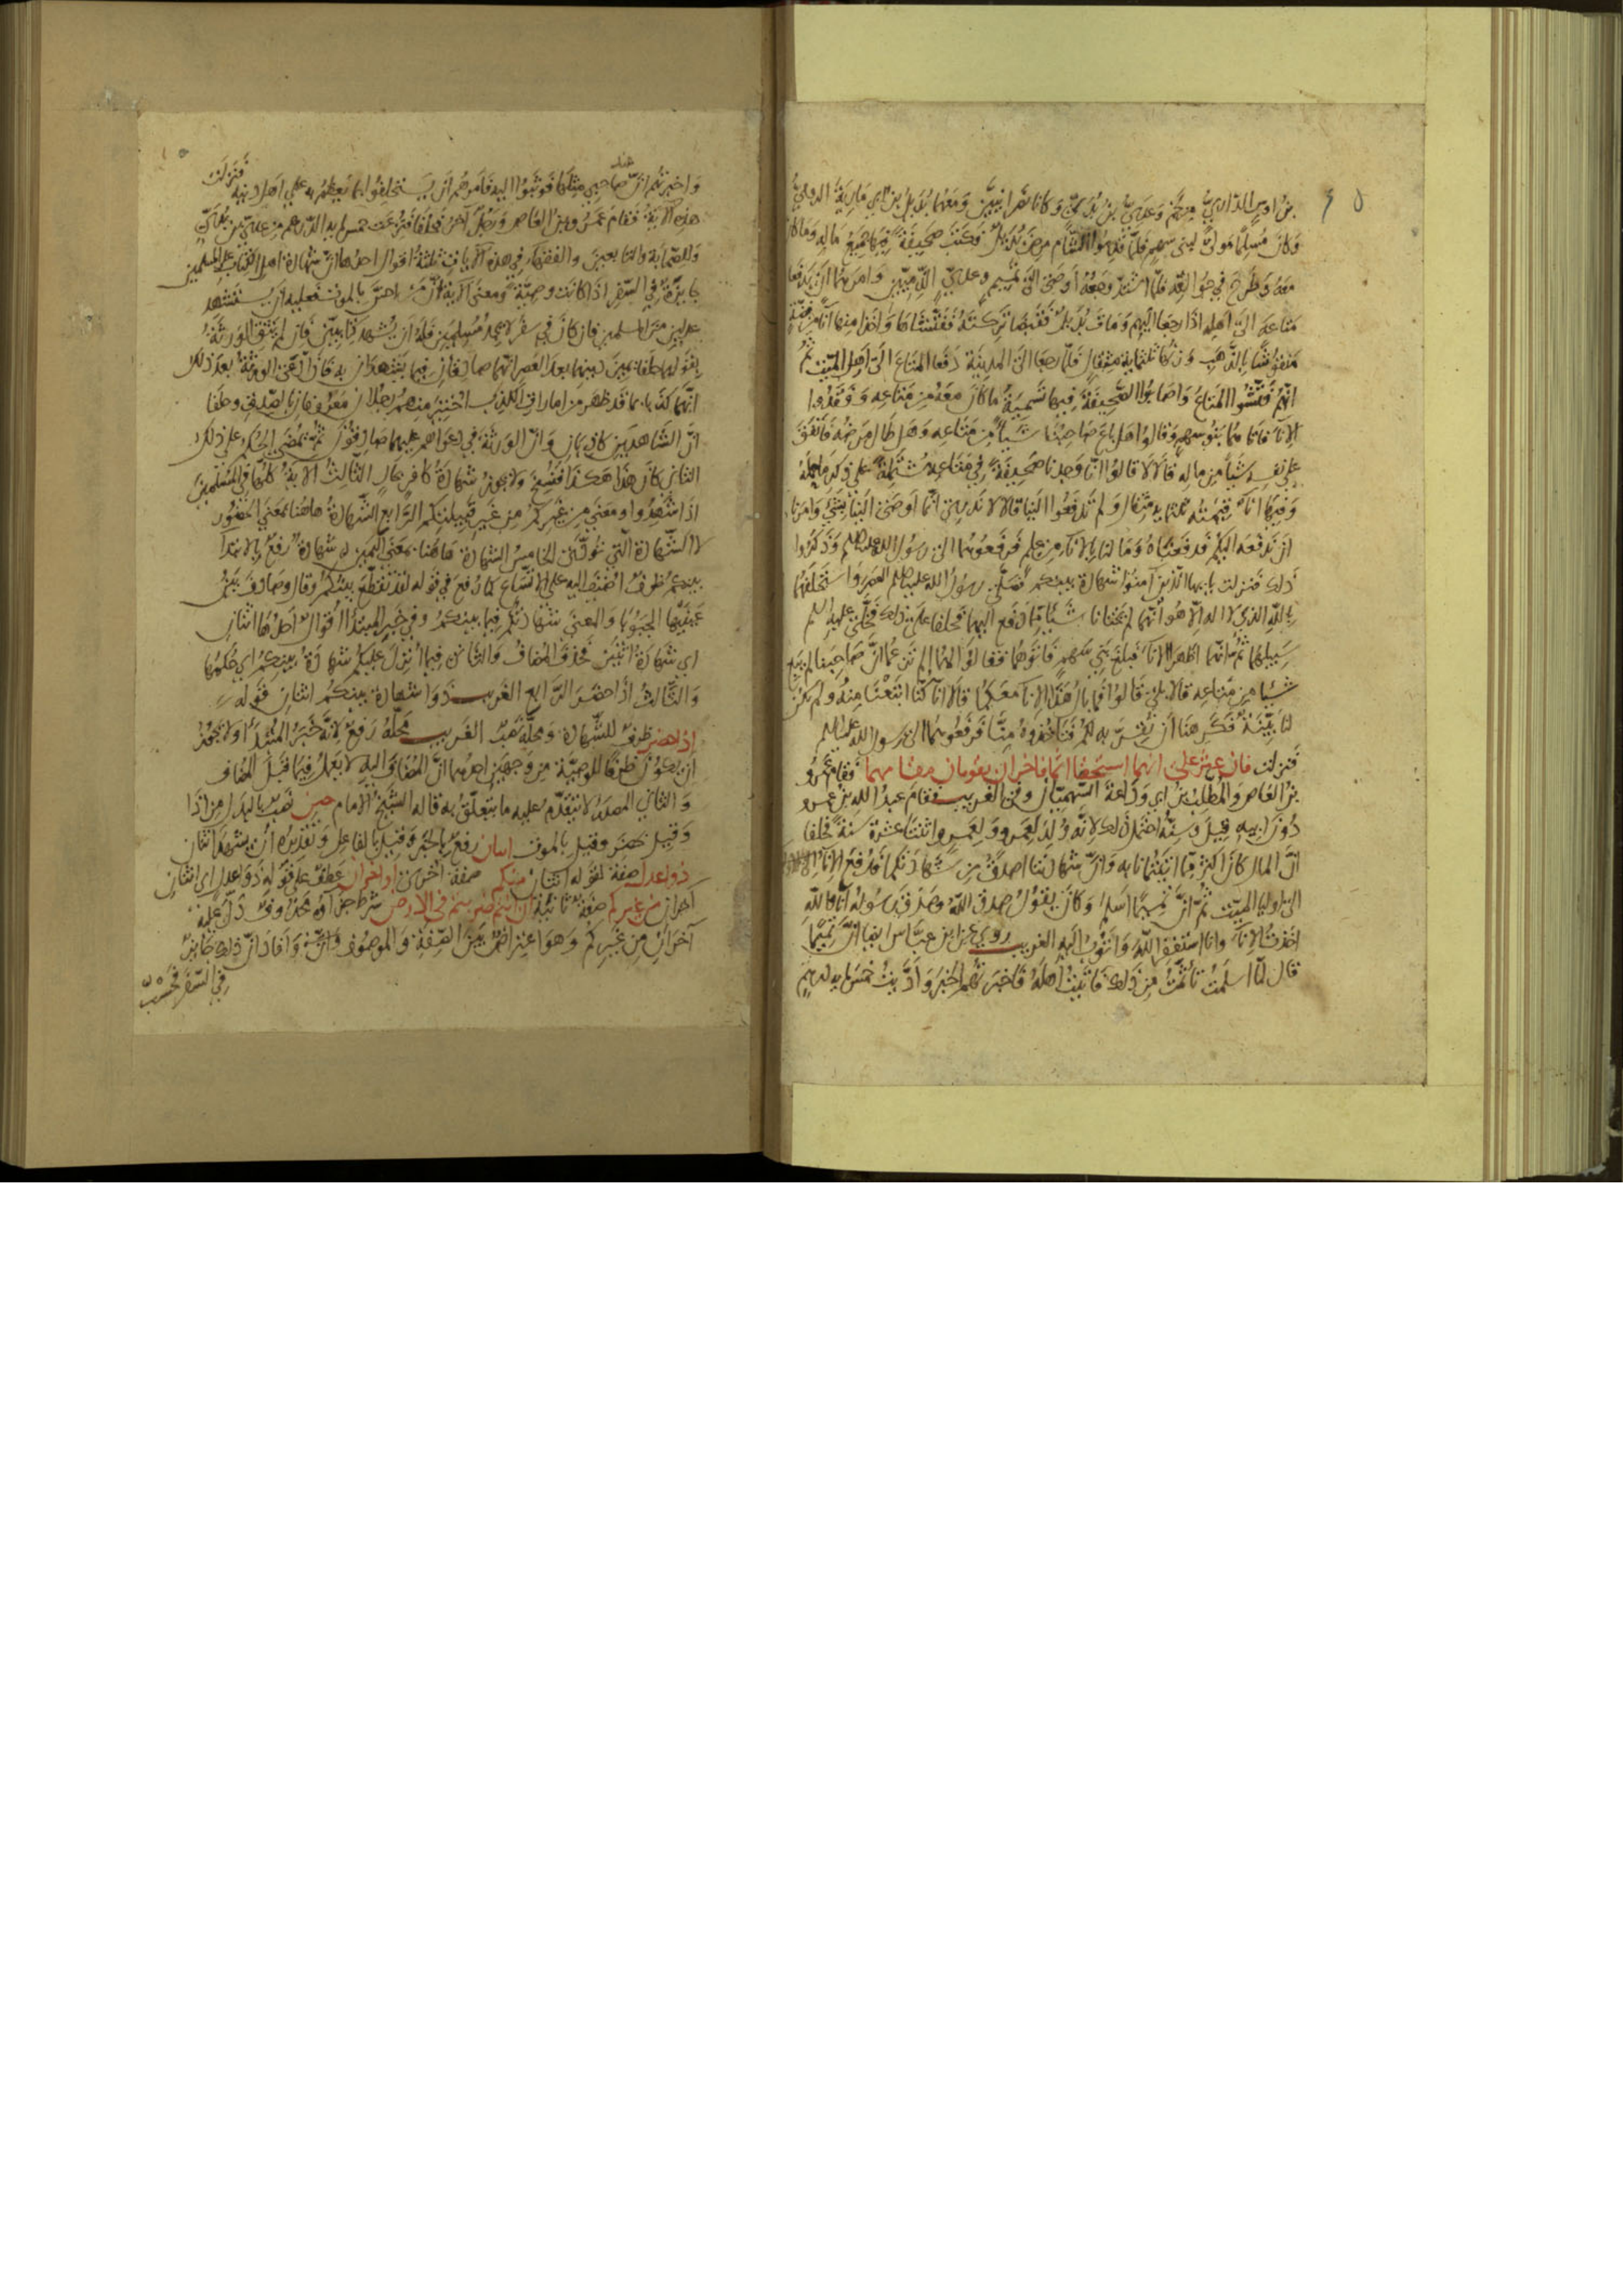 بن اوس الداري وعدي بن وكانا نصرانيين ومعهما بديل بن ابي مارية الدولي
وكان مسلما مولى لبني سهم فلما قدموا الشام مرض بديل فكتب صحيفة فيها جميع ماله وما كان
معه وطرح في جوالقه فلما اشتد وجعه اوصى الى تميم وعدي الداريين وامرهما ان يدفعا
متاعه الى اهله اذا رجعا اليهم ومات بديل فقبضا تركته ففتشاها واخذا منها اناء من فضة
منقوشا بالذهب وزنها ثلثماية مثقال فلما رجعا الى المدينة دفعا المتاع الى اهل الميت ثم
انهم فتشوا المتاع واصابوا الصحيفة فيها تسمية ما كان معه من متاعه وفقدوا
الاناء فاتاهما بنو سهم وقالوا هل باع صاحبنا شيأ من متاعه وهل طال مرضه فانفق
على نفسه شيأ من ماله قالا لا قالوا انا وجدنا صحيفة في متاعه مشتملة على ذكر ماحمله
وفيها اناء قيمته ثلثماية مثقال ولم تدفعوا الينا قالا لا ندري انما اوصى الينا بشئ وامرنا
ان ندفعه اليكم قد دفعناه وما لنا بالاناء من علم فرفعوهما الى رسول الله عليه السلم وذكروا
ذلك فنزلت يا ايها الذين آمنوا شهادة بينكم فصلى رسول الله عليه السلم العصر واستحلفهما
بالله الذي لا اله الا هو انهما لم يختانا شيأ مما دفع اليهما فحلفا على ذلك فخلى عليه السلم
سبيلهما ثم انهما اظهرا الاناء فبلغ بني سهم فاتوهما فقالوا لهما الم تزعما ان صاحبنا لم يبع
شيئا من متاعه قالا بلى قالوا فما بال هذا الاناء معكما قالا انا كنا ابتعنا منه ولم يكن
لنا بينة فكرهنا ان نقر به لكم فتأخذوه منا فرفعوهما الى رسول الله عليه السلم
فنزلت فان عثر على انهما استحقا اثما فاخران يقومان مقامهما فقام عمرو
بن العاص والمطلب بن ابي وداعة السهميان وفي الغريب فقام عبد الله بن عمرو
دون ابيه قيل وسنه احتمل ذلك لانه ولد لعمرو ولعمرو اثنتا عشرة سنة فحلفا
ان المال كان اكثر مما اتيتمانا به وان شهادتنا اصدق من شهادتكما فدفع الاناء
الى اوليا الميت ثم ان تميما اسلم وكان يقول صدق الله وصدق رسوله انا والله
اخذت الاناء وانا استغفر الله واتوب اليه الغريب روي عن ابن عباس ايضا ان تميما
قال لما اسلمت تأثمت من ذلك فاتيت اهله فاخبرتهم الخبر واديت خمس ماية درهم
واخبرتهم ان عند صاحبي مثلها فوثبوا اليه فامرهم ان يستحلفوا بما يعظم به على اهل دينه فنزلت
هذه الآية فقام عمرو بن العاص ورجل آخر فحلفا فنزعت خمس ماية الدرهم من عدي بن بداء
وللصحابة والتابعين والفقهاء في هذه الآيات ثلثة اقوال احدها ان شهادة اهل الكتاب على المسلمين
جايزة في السفر اذا كانت وصية ومعنى الآية ان من احس بالموت فعليه ان يستشهد
عدلين من المسلمين فان كان في سفر لا يجد مسلمين فله ان يشهد كتابيين فان لم يثق الورثة
بقولهما حلفا يمين دينهما بعد العصر انهما صادقان فيما يشهدان به فان ادعى الورثة بعد ذلك
انهما كذبا بما قد ظهر من امارات الكذب اختير منهم رجلان معروفان بالصدق وحلفا
ان الشاهدين كاذبان وان الورثة في دعواهم عليهما صادقون ثم يمضي الحكم على ذلك
الثاني كان هذا هكذا فنسخ ولا يجوز شهادة كافر بحال الثالث الاية كلها في المسلمين
اذا اشهدوا ومعنى من غيركم من غير قبيلتكم الرابع الشهادة هاهنا بمعنى الحضور
لا الشهادة التي تؤدى الخامس الشهادة هاهنا بمعنى اليمين شهادة رفع بالابتداء
بينكم ظرف اضيف اليه على الاتساع كما رفع في قوله لقد تقطع بينكم وقال وصادف بينكم
والمعنى شهادتكم فيما بينكم وفي خبر المبتدا اقوال احدها اثنان
اي شهادة اثنين فحذف المضاف والثاني فيما انزل عليكم شهادة بينكم اي حكمها
والثالث اذا حضر الرابع الغريب ذوا شهادة بينكم اثنان قوله
اذا حضر ظرف للشهادة ومحله نصب الغريب محله رفع لانه خبر المبتدا ولا يجوز
ان يكون ظرفا للوصية من وجهين احدهما ان المضاف اليه لا يعمل فيما قبل المضاف
والثاني المصدر لا يتقدم عليه ما يتعلق به قاله الشيخ الامام حين نصب بالبدل من اذا
وقيل حضر وقيل بالموت اثنان رفع بالخبر وقيل بالفاعل وتقديره ان يشهد اثنان
ذوا عدل صفة لقوله اثنان منكم صفة اخرى او اخران عطف على قوله ذوا عدل اي اثنان
آخران من غيركم صفة ثانية ان انتم ضربتم في الارض شرط جزاؤه محذوف دل عليه
آخران من غيركم وهو اعتراض بين الصفة والموصوف وافاد ان ذلك جائز
في السفر فحسب